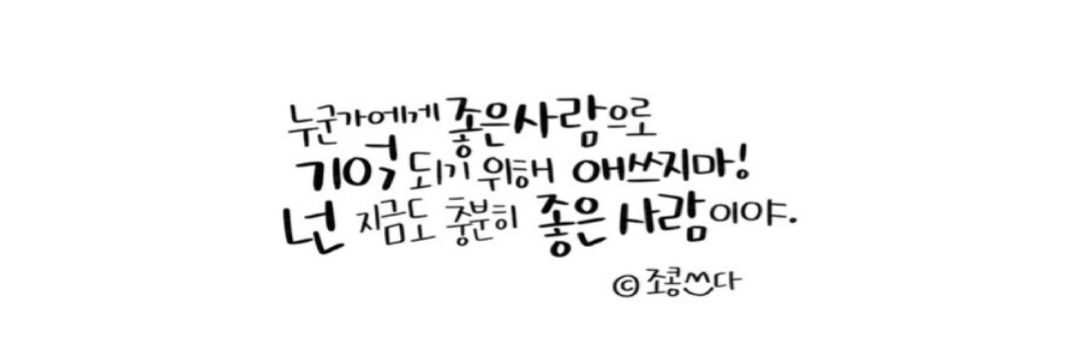 누군가에게 좋은사람으로
기억되기 위해 애쓰지마!
넌 지금도 충분히 좋은 사람이야.
© 조콩쓰다